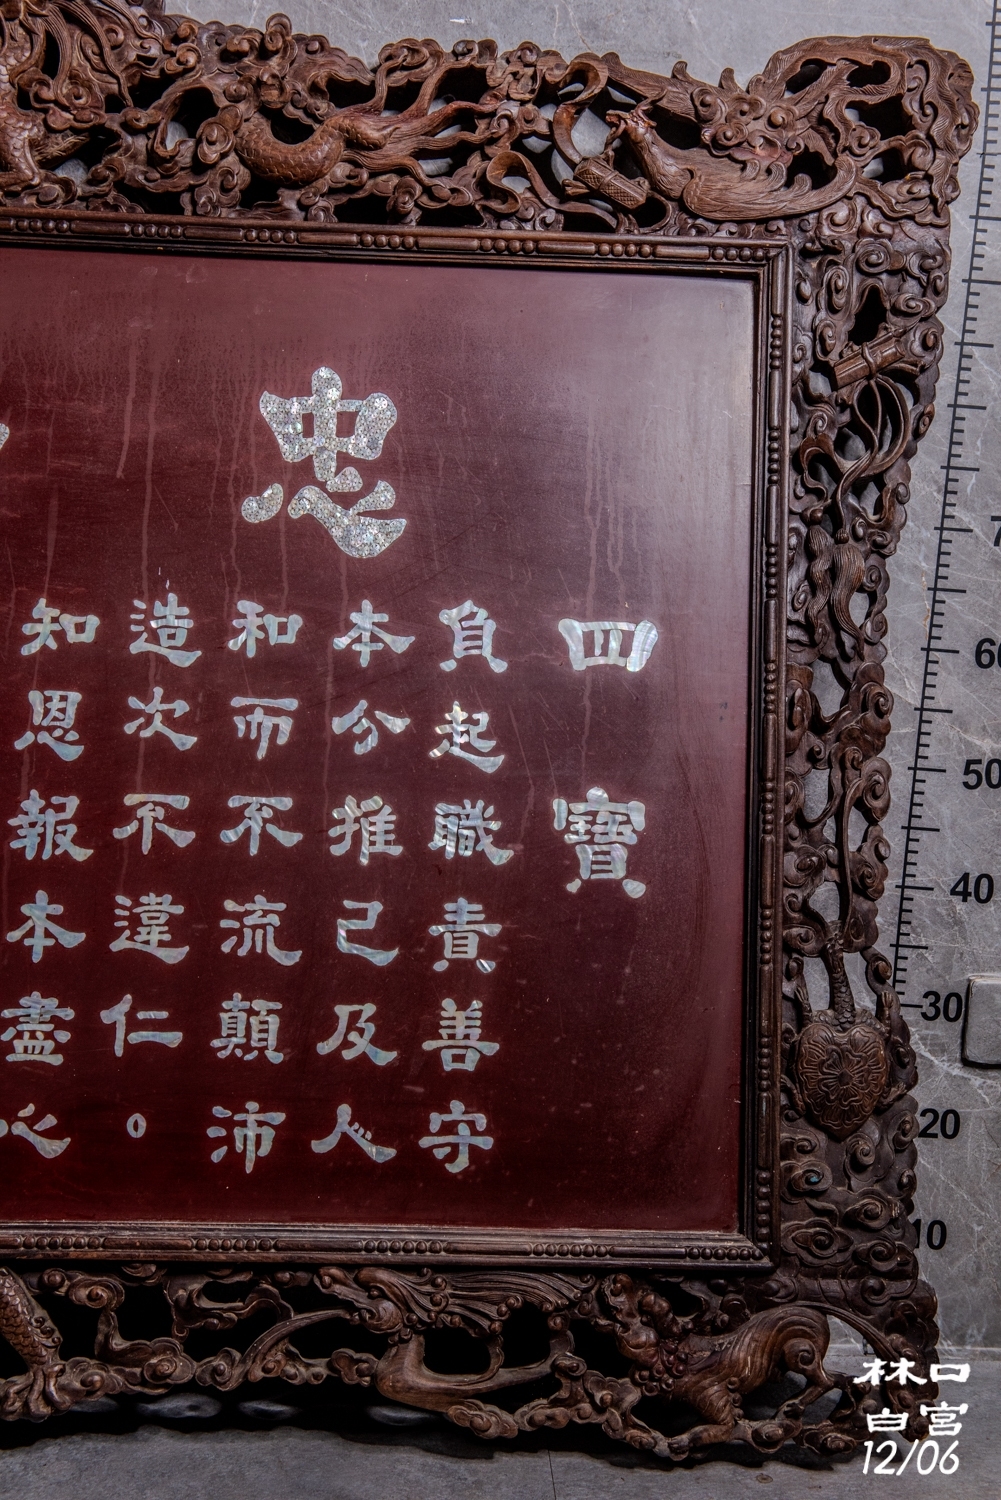 四寶
忠
負起職責善守
本分推己及人
和而不流顛沛
造次不違仁。
知恩報本盡心
60
50
40
30
20
10
林口
白宮
12/06